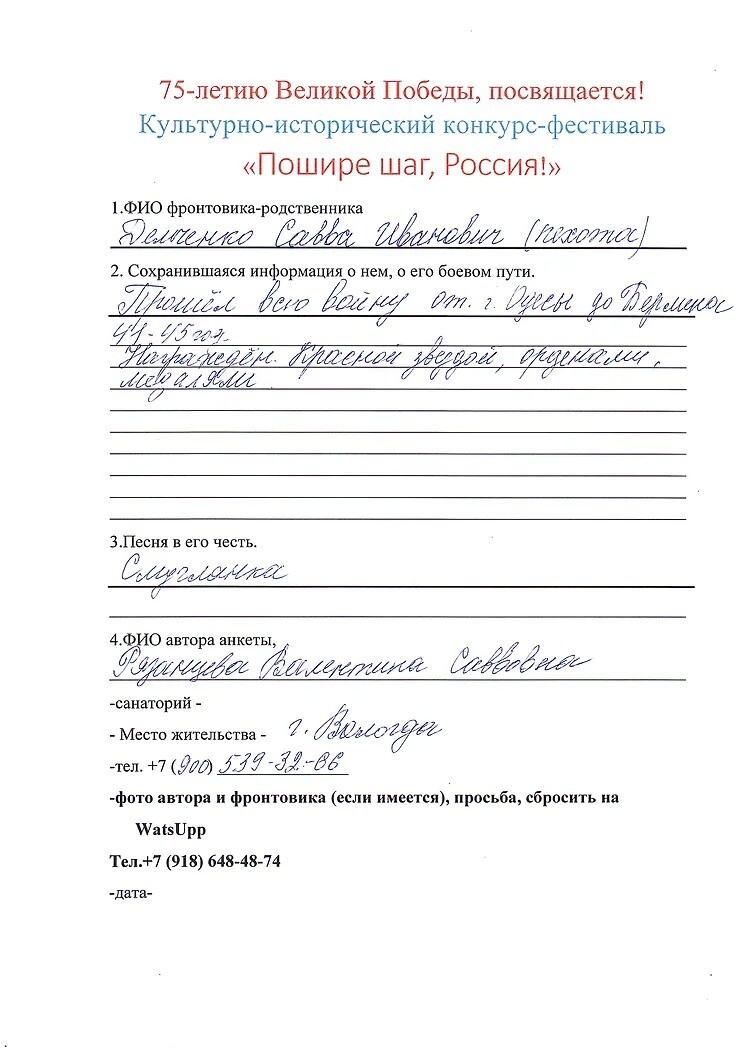 75-летию Великой Победы, посвящается!
Культурно-исторический конкурс-фестиваль
«Пошире шаг, Россия!»
1.ФИО фронтовика-родственника
Савва Иванович (пехота)
2. Сохранившаяся информация о нем, о его боевом пути.
Прошёл всю войну от. г. Одесы до Берлина
41-45 год.
Награждён. Красной звездой, орденами,
медалями
3.Песня в его честь.
Смуглянка
4.ФИО автора анкеты,
Рязанцева Валентина Саввовна
-санаторий -
- Место жительства - г. Вологда
-тел. +7 (900) 539-32-86
-фото автора и фронтовика (если имеется), просьба, сбросить на
WatsUpp
Тел.+7 (918) 648-48-74
-дата-